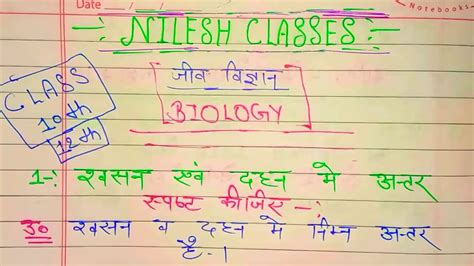 Date __/__/__
Notebooks
-: NILESH CLASSES :-
जीव विज्ञान
CLASS
10th
12th
BIOLOGY
1-: श्वसन एवं दहन मे अन्तर
स्पष्ट कीजिए -:
उ० श्वसन व दहन मे निम्न अन्तर
है - ।